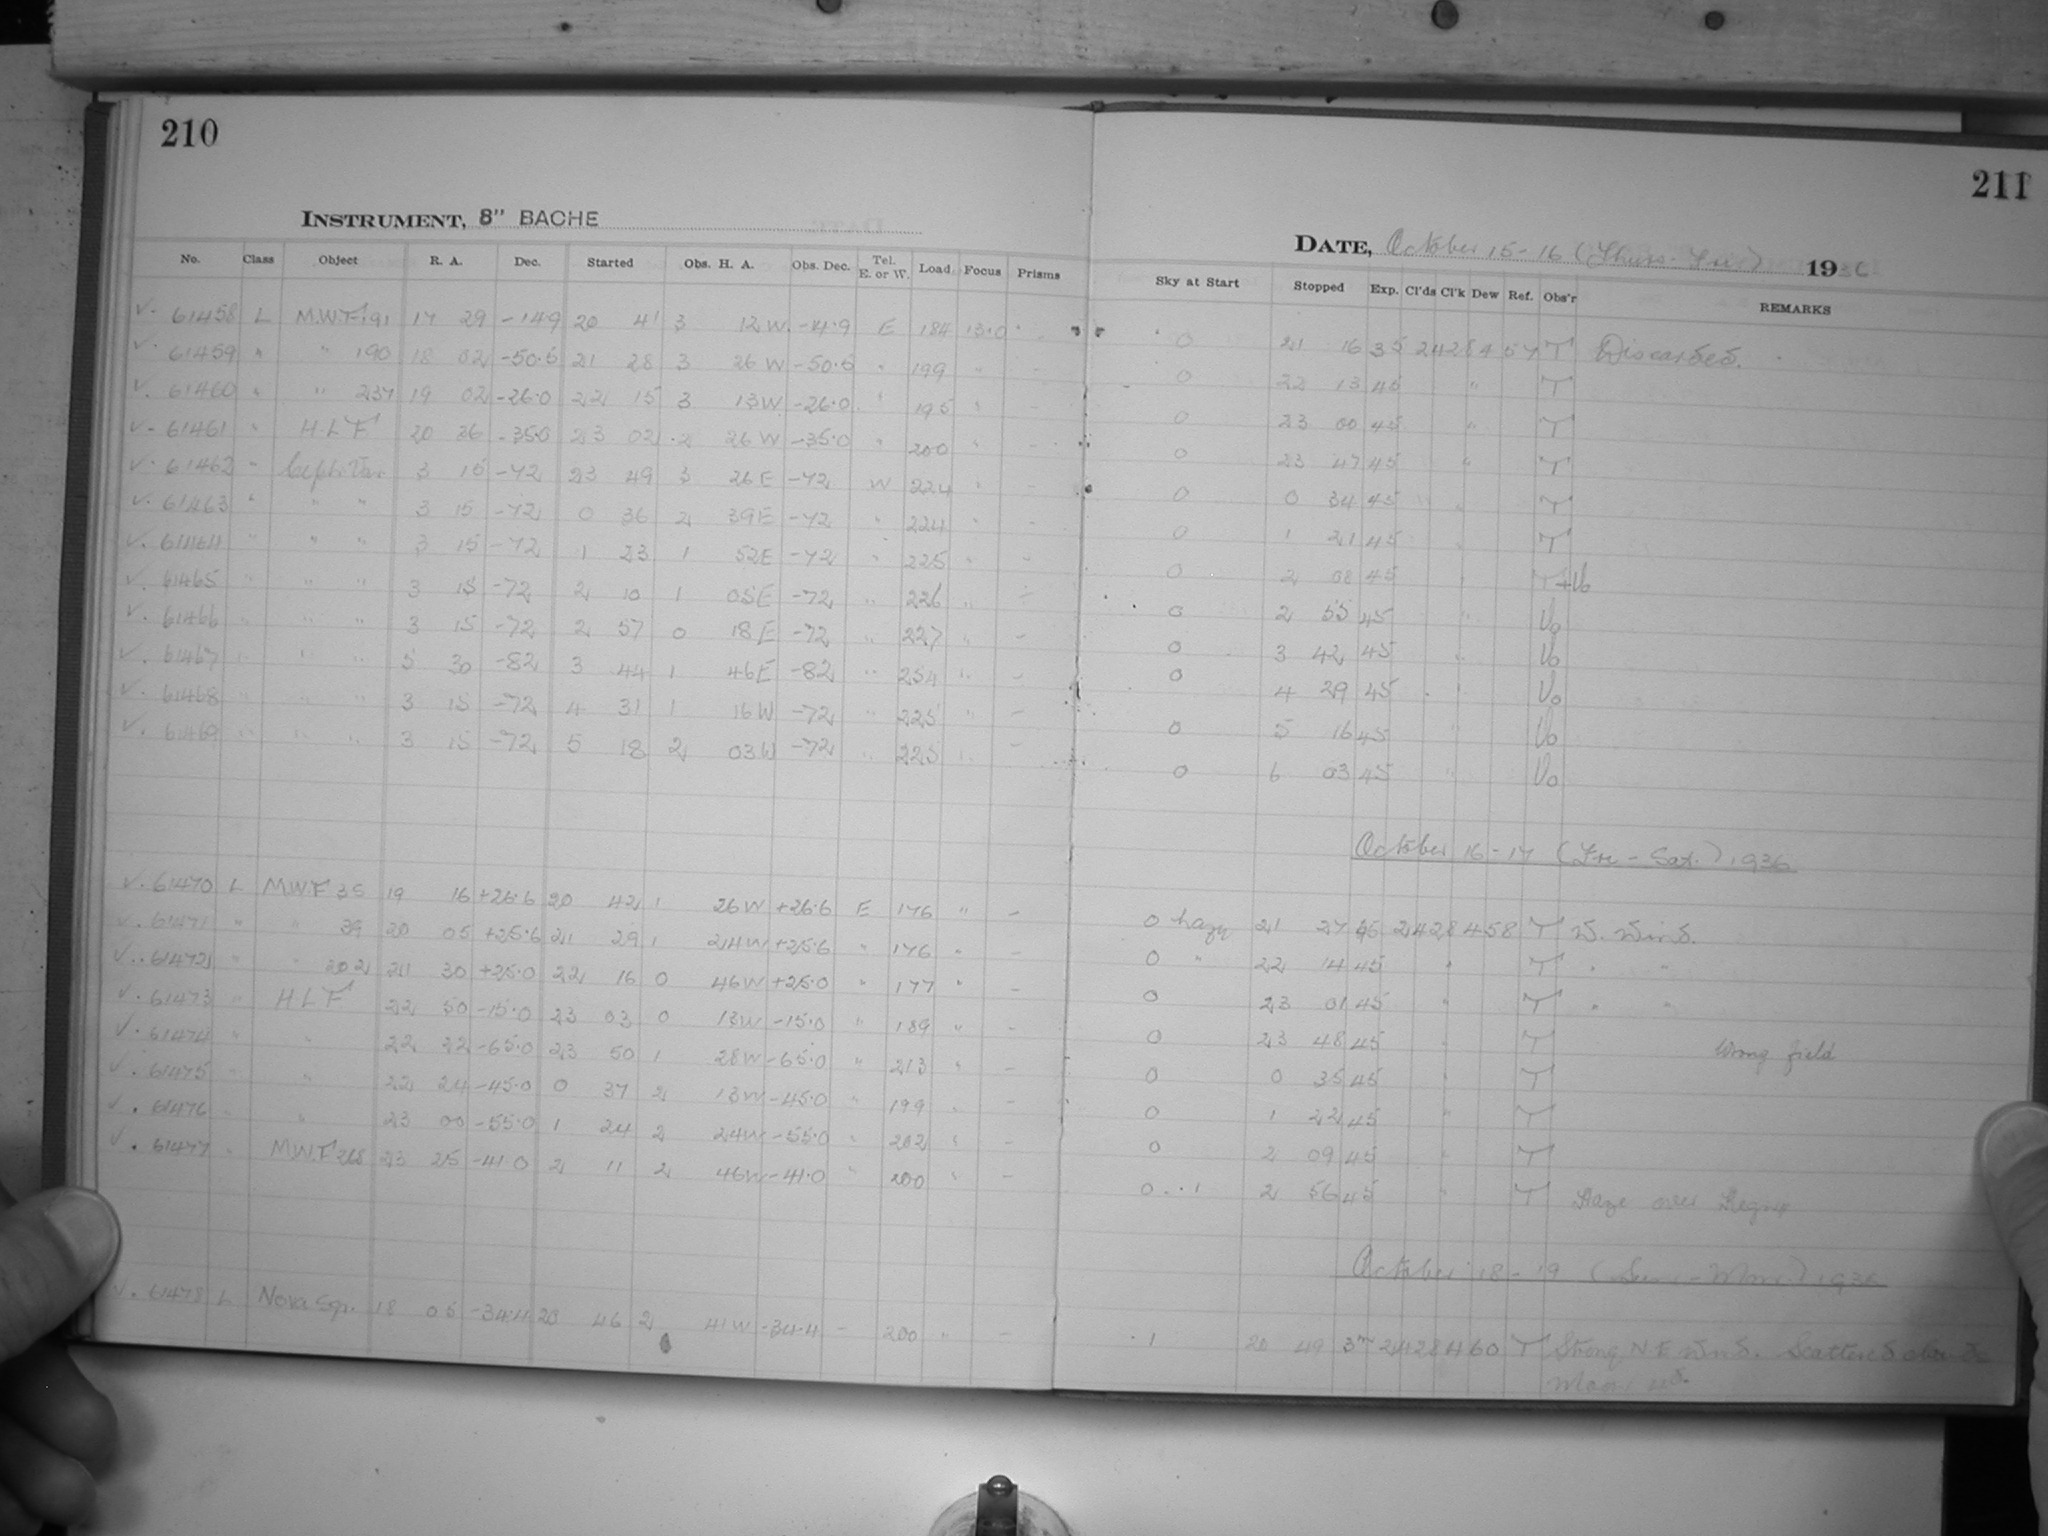 210
INSTRUMENT, 8" BACHE
No. Class Object R. A. Dec. Started Obs. H. A. Obs. Dec. Tel. E. or W. Load Focus Prisms
✓. 61458 L M.W.F. 191 17 29 -14.9 20 41 3 12 W. -14.9 E 184 13.0 "
✓. 61459 " " 190 18 02 -50.5 21 28 3 26 W -50.5 " 199 " -
✓. 61460 " " 237 19 02 -26.0 22 15 3 13 W. -26.0 " 195 " -
✓. 61461 " H L F 20 36 -35.0 23 02 2 26 W -35.0 " 200 " -
✓. 61462 " Ceph. Var. 3 15 -72 23 49 3 26 E -72 W 224 " -
✓. 61463 " " " 3 15 -72 0 36 2 39 E -72 " 224 " -
✓. 61464 " " " 3 15 -72 1 23 1 52 E -72 " 225 " -
✓. 61465 " " " 3 15 -72 2 10 1 05 E -72 " 226 " -
✓. 61466 " " " 3 15 -72 2 57 0 18 E -72 " 227 " -
✓. 61467 " " " 5 30 -82 3 44 1 46 E -82 " 254 " -
✓. 61468 " " " 3 15 -72 4 31 1 16 W -72 " 225 " -
✓. 61469 " " " 3 15 -72 5 18 2 03 W -72 " 225 " -
✓. 61470 L M.W.F 35 19 16 +26.6 20 42 1 26 W +26.6 E 176 " -
✓. 61471 " " 39 20 05 +25.6 21 29 1 24 W +25.6 " 176 " -
✓. 61472 " " 202 21 30 +25.0 22 16 0 46 W +25.0 " 177 " -
✓. 61473 " H L F 22 50 -15.0 23 03 0 13 W -15.0 " 189 " -
✓. 61474 " " 22 22 -65.0 23 50 1 28 W -65.0 " 213 " -
✓. 61475 " " 22 24 -45.0 0 37 2 13 W -45.0 " 199 " -
✓. 61476 " " 23 00 -55.0 1 24 2 24 W -55.0 " 202 " -
✓. 61477 " M.W.F 268 23 25 -41.0 2 11 2 46 W -41.0 " 200 " -
✓. 61478 L Nova Sgr. 18 05 -34.4 20 46 2 41 W -34.4 - 200 " -
211
DATE, October 15-16 (Thurs-Fri) 1936
Sky at Start Stopped Exp. Cl'ds Cl'k Dew Ref. Obs'r REMARKS
0 21 16 35 2428457 T Discarded.
0 22 13 45 " T
0 23 00 45 " T
0 23 47 45 " T
0 0 34 45 " T
0 1 21 45 " T
0 2 08 45 " T+Vo
0 2 55 45 " Vo
0 3 42 45 " Vo
0 4 29 45 " Vo
0 5 16 45 " Vo
0 6 03 45 " Vo
October 16-17 (Fri - Sat.) 1936
0 hazy 21 27 45 2428458 T W. Wind.
0 " 22 14 45 " T " "
0 23 01 45 " T " "
0 23 48 45 " T Wrong field
0 0 35 45 " T
0 1 22 45 " T
0 2 09 45 " T
0..1 2 56 45 " T Haze over
October 18-19 (Sun - Mon) 1936
1 20 49 3m 2428460 T Strong N E Wind. Scattered clouds
Moon